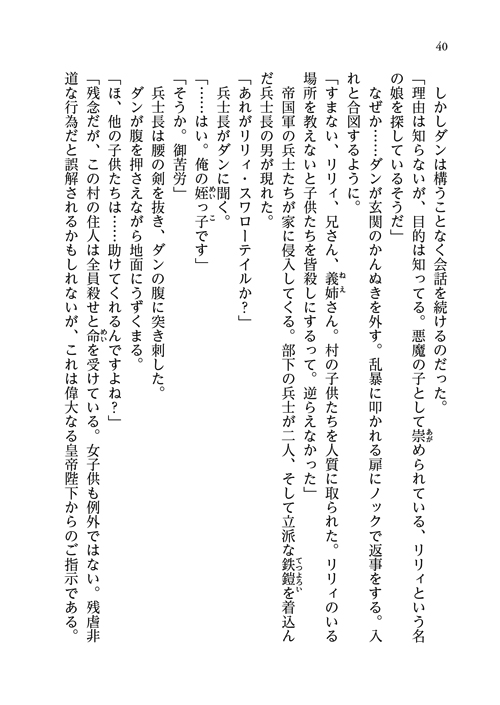 40
しかしダンは構うことなく会話を続けるのだった。
「理由は知らないが、目的は知ってる。悪魔の子として崇められている、リリィという名
の娘を探しているそうだ」
なぜか……ダンが玄関のかんぬきを外す。乱暴に叩かれる扉にノックで返事をする。入
れと合図するように。
「すまない、リリィ、兄さん、義姉さん。村の子供たちを人質に取られた。リリィのいる
場所を教えないと子供たちを皆殺しにするって。逆らえなかった」
帝国軍の兵士たちが家に侵入してくる。部下の兵士が二人、そして立派な鉄鎧を着込ん
だ兵士長の男が現れた。
「あれがリリィ・スワローテイルか？」
兵士長がダンに聞く。
「……はい。俺の姪っ子です」
「そうか。御苦労」
兵士長は腰の剣を抜き、ダンの腹に突き刺した。
ダンが腹を押さえながら地面にうずくまる。
「ほ、他の子供たちは……助けてくれるんですよね？」
「残念だが、この村の住人は全員殺せと命を受けている。女子供も例外ではない。残虐非
道な行為だと誤解されるかもしれないが、これは偉大なる皇帝陛下からのご指示である。